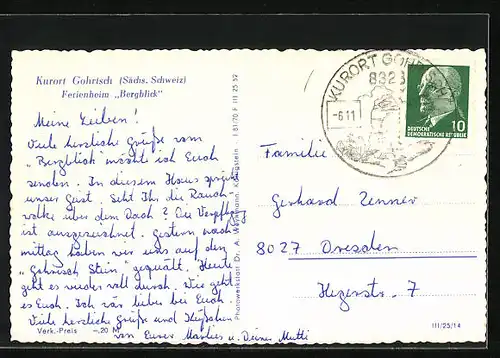 Kurort Gohrisch (Sächs. Schweiz)
Ferienheim „Bergblick"
Meine Lieben!
Viele herzliche Grüße vom
"Bergblick" möcht ich Euch
senden. In diesem Haus
unser Geist. Seht Ihr die Rauch-
wolke über dem Dach? Die Verpfleg.
ist ausgezeichnet. Gestern nach-
mittag haben wir uns auf den
"Gohrisch Stein" gequält. Heute
geht es wieder voll durch. Wie geht
es Euch. Ich wär lieber bei Euch
Viele herzliche Grüße und Küßchen
von Eurer Marlies u. Deiner Mutti
Verk.-Preis -,20 M
Photowerkstatt Dr. A. Königstein I 81/70 F III 25 52
KURORT GOH
8323
-6.11
DEUTSCHE
DEMOKRATISCHE REPUBLIK
10
Familie
Gerhard Zenner
8027 Dresden
Hegerstr. 7
III/25/14